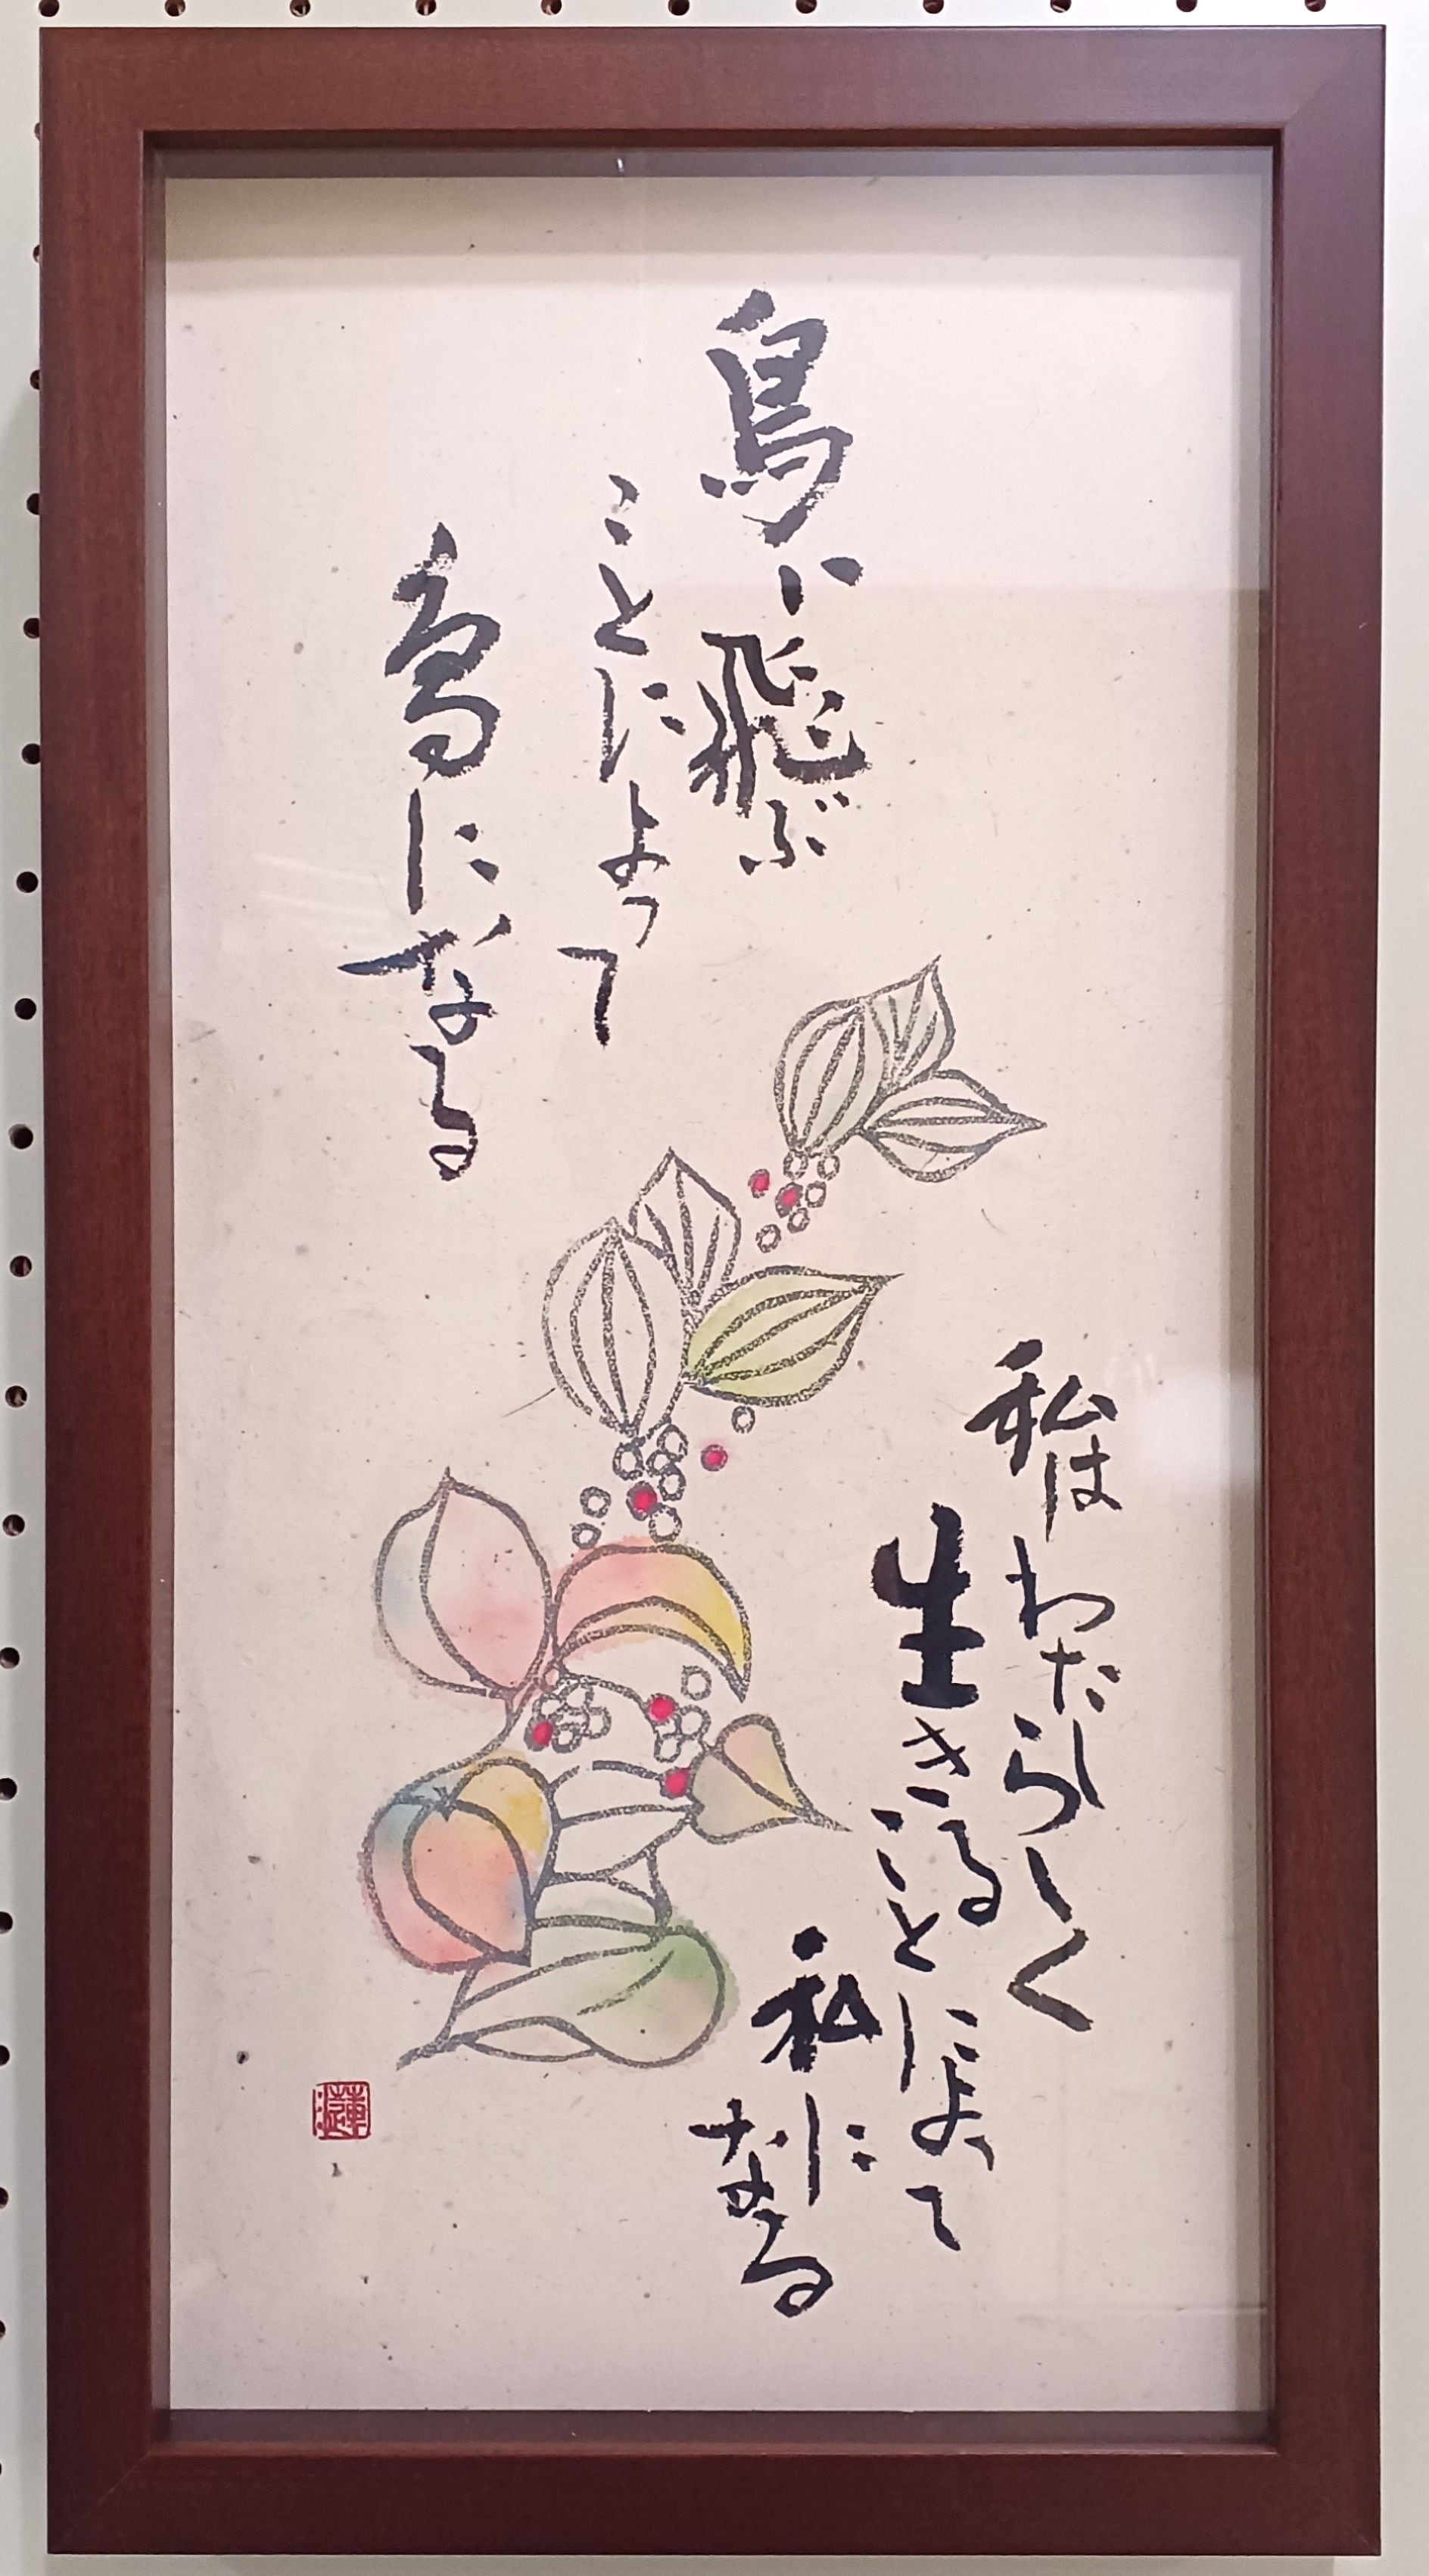 鳥ハ飛ぶ
ことによって
鳥になる
私はわたしらしく
生きることによって
私になる